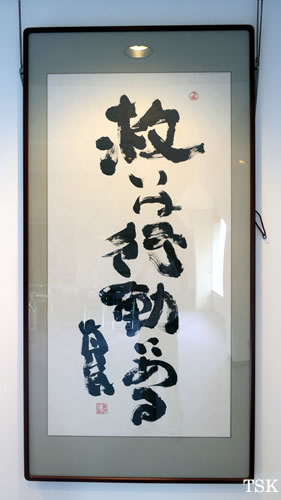 救いは行動にある
TSK